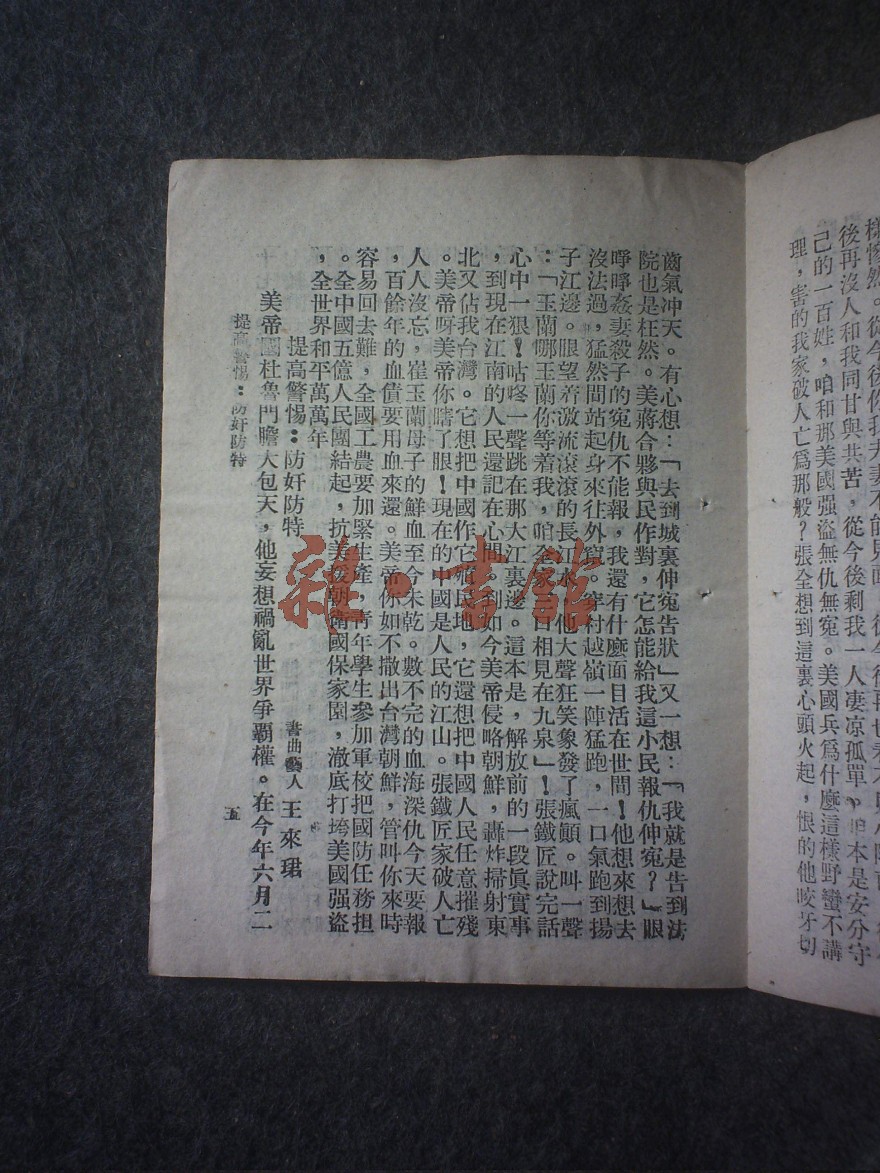 樣慘然。從今後你我夫妻不能見面，從今後再也看不見小陔
後再沒人和我同甘與共苦，從今後剩我一人凄凉孤單。咱本是安分守
己的一百姓，咱和那美國强盜無仇無寃。美國兵爲什麼這樣野蠻不講
理，害的我家破人亡爲那般？張全想到這裏心頭火起，恨的他咬牙切
齒氣冲天。有心想：「去到城裏伸寃告狀」又一想：「我就是告到法
院也是枉然。美蔣合夥與民作對，它怎能給我這小民報仇伸寃？」眼
睜睜姦妻殺子的寃仇不能報，我還有什麼面目活在世間！他想來想去
沒法過，猛然間站起身來往外竄。穿村越嶺一陣猛跑，一口氣跑到揚
子江邊。眼望着激流滾滾的長江水，他大聲狂笑象發了瘋顚。叫一聲
：「玉蘭哪玉蘭你等着我，咱全家口相見在九泉」！張鐵匠說完話
心中一狠！咕咚一聲跳在那大江裏邊。這本是，解放前的一段眞實事
，到現在江南的人民還記在心間。到如今美帝侵略朝鮮，轟炸掃射東
北又佔我台灣。它想把中國作它殖民地，它還想把中國人民任意摧殘
。美帝呀美帝你瞎了眼！現在的中國是人民的江山。張鐵匠家破人亡
人人沒忘，崔玉蘭母子的鮮血至今未乾。數不完的血海深仇今天要報
，百餘年的血債要用血來還。美帝你如不撒出台灣朝鮮，管叫你來時
容易回去難，全國工農要加緊生產，青年學生參加軍校把國防任務担
。全中國五億人民團結起，抗美援朝衛國保家園，澈底打垮美國强盜
，全世界和平萬萬年
提高警惕：防奸防特
書曲藝人 王來珺
美帝國杜魯門膽大包天，他妄想禍亂世界爭覇權。在今年六月二
提高警惕：防奸防特
五
雜·書館